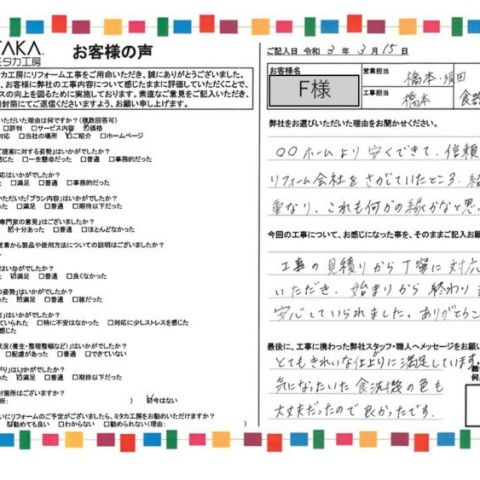 TAKA.
ミタカ工房
お客様の声
タカ工房にリフォーム工事をご用命いただき、誠にありがとうございました。
、お客様に弊社の工事内容について感じたままに評価していただくことで、
スの向上を図るために実施しております。素直なご意見をご記入いただき、
封筒にてご返信くださいますよう、お願い申し上げます。
いただいた理由は何ですか?(複数回答可)
□評判 □サービス内容 ☑価格
対応 □当社の場所 ☑ご紹介 □ホームページ
ご提案に対する姿勢」はいかがでしたか?
感じた □一生懸命だった □普通 □事務的だった
応はいかがでしたか?
った □満足 □普通 □事務的だった
いただいた「プラン内容」はいかがでしたか?
った □満足 □普通 □期待以下だった
専門家の意見」はございましたか?
☑十分あった □普通 □ほとんどなかった
営業から製品や使用方法についての説明はございましたか?
はいかがでしたか?
った ☑満足 □普通 □良くなかった
の姿勢」はいかがでしたか?
った □満足 □普通 □雑だった
けましたか?
ていられた □特に不安はなかった □対応に少しストレスを感じた
状況(養生・整理整頓など)はいかがでしたか?
□配慮があった □できていない
がでしたか?
った □満足 □普通 □期待以下だった
対箇所はございますか?
) ☑今はない
いにリフォームのご予定がございましたら、ミタカ工房をお勧めいただけますか?
☑勧めても良い □わからない □勧められない(理由:
ご記入日 令和 3 年 3 月 15 日
お客様名
F様
営業担当
橋本・須田
工事担当
橋本
弊社をお選びいただいた理由をお聞かせください。
〇〇ホームより安くできて、信頼
リフォーム会社をさがしていたところ、
重なり、これも何かの縁かなと思
今回の工事について、お感じになった事を、そのままご記入お願
工事の見積りから丁寧に対応
いただき、始まりから終わりま
安心していられました。ありがとうご
最後に、工事に携わった弊社スタッフ・職人へメッセージをお願い
とてもきれいな仕上りに満足しています。
気になっていた食洗機の色も
大丈夫だったので良かったです。